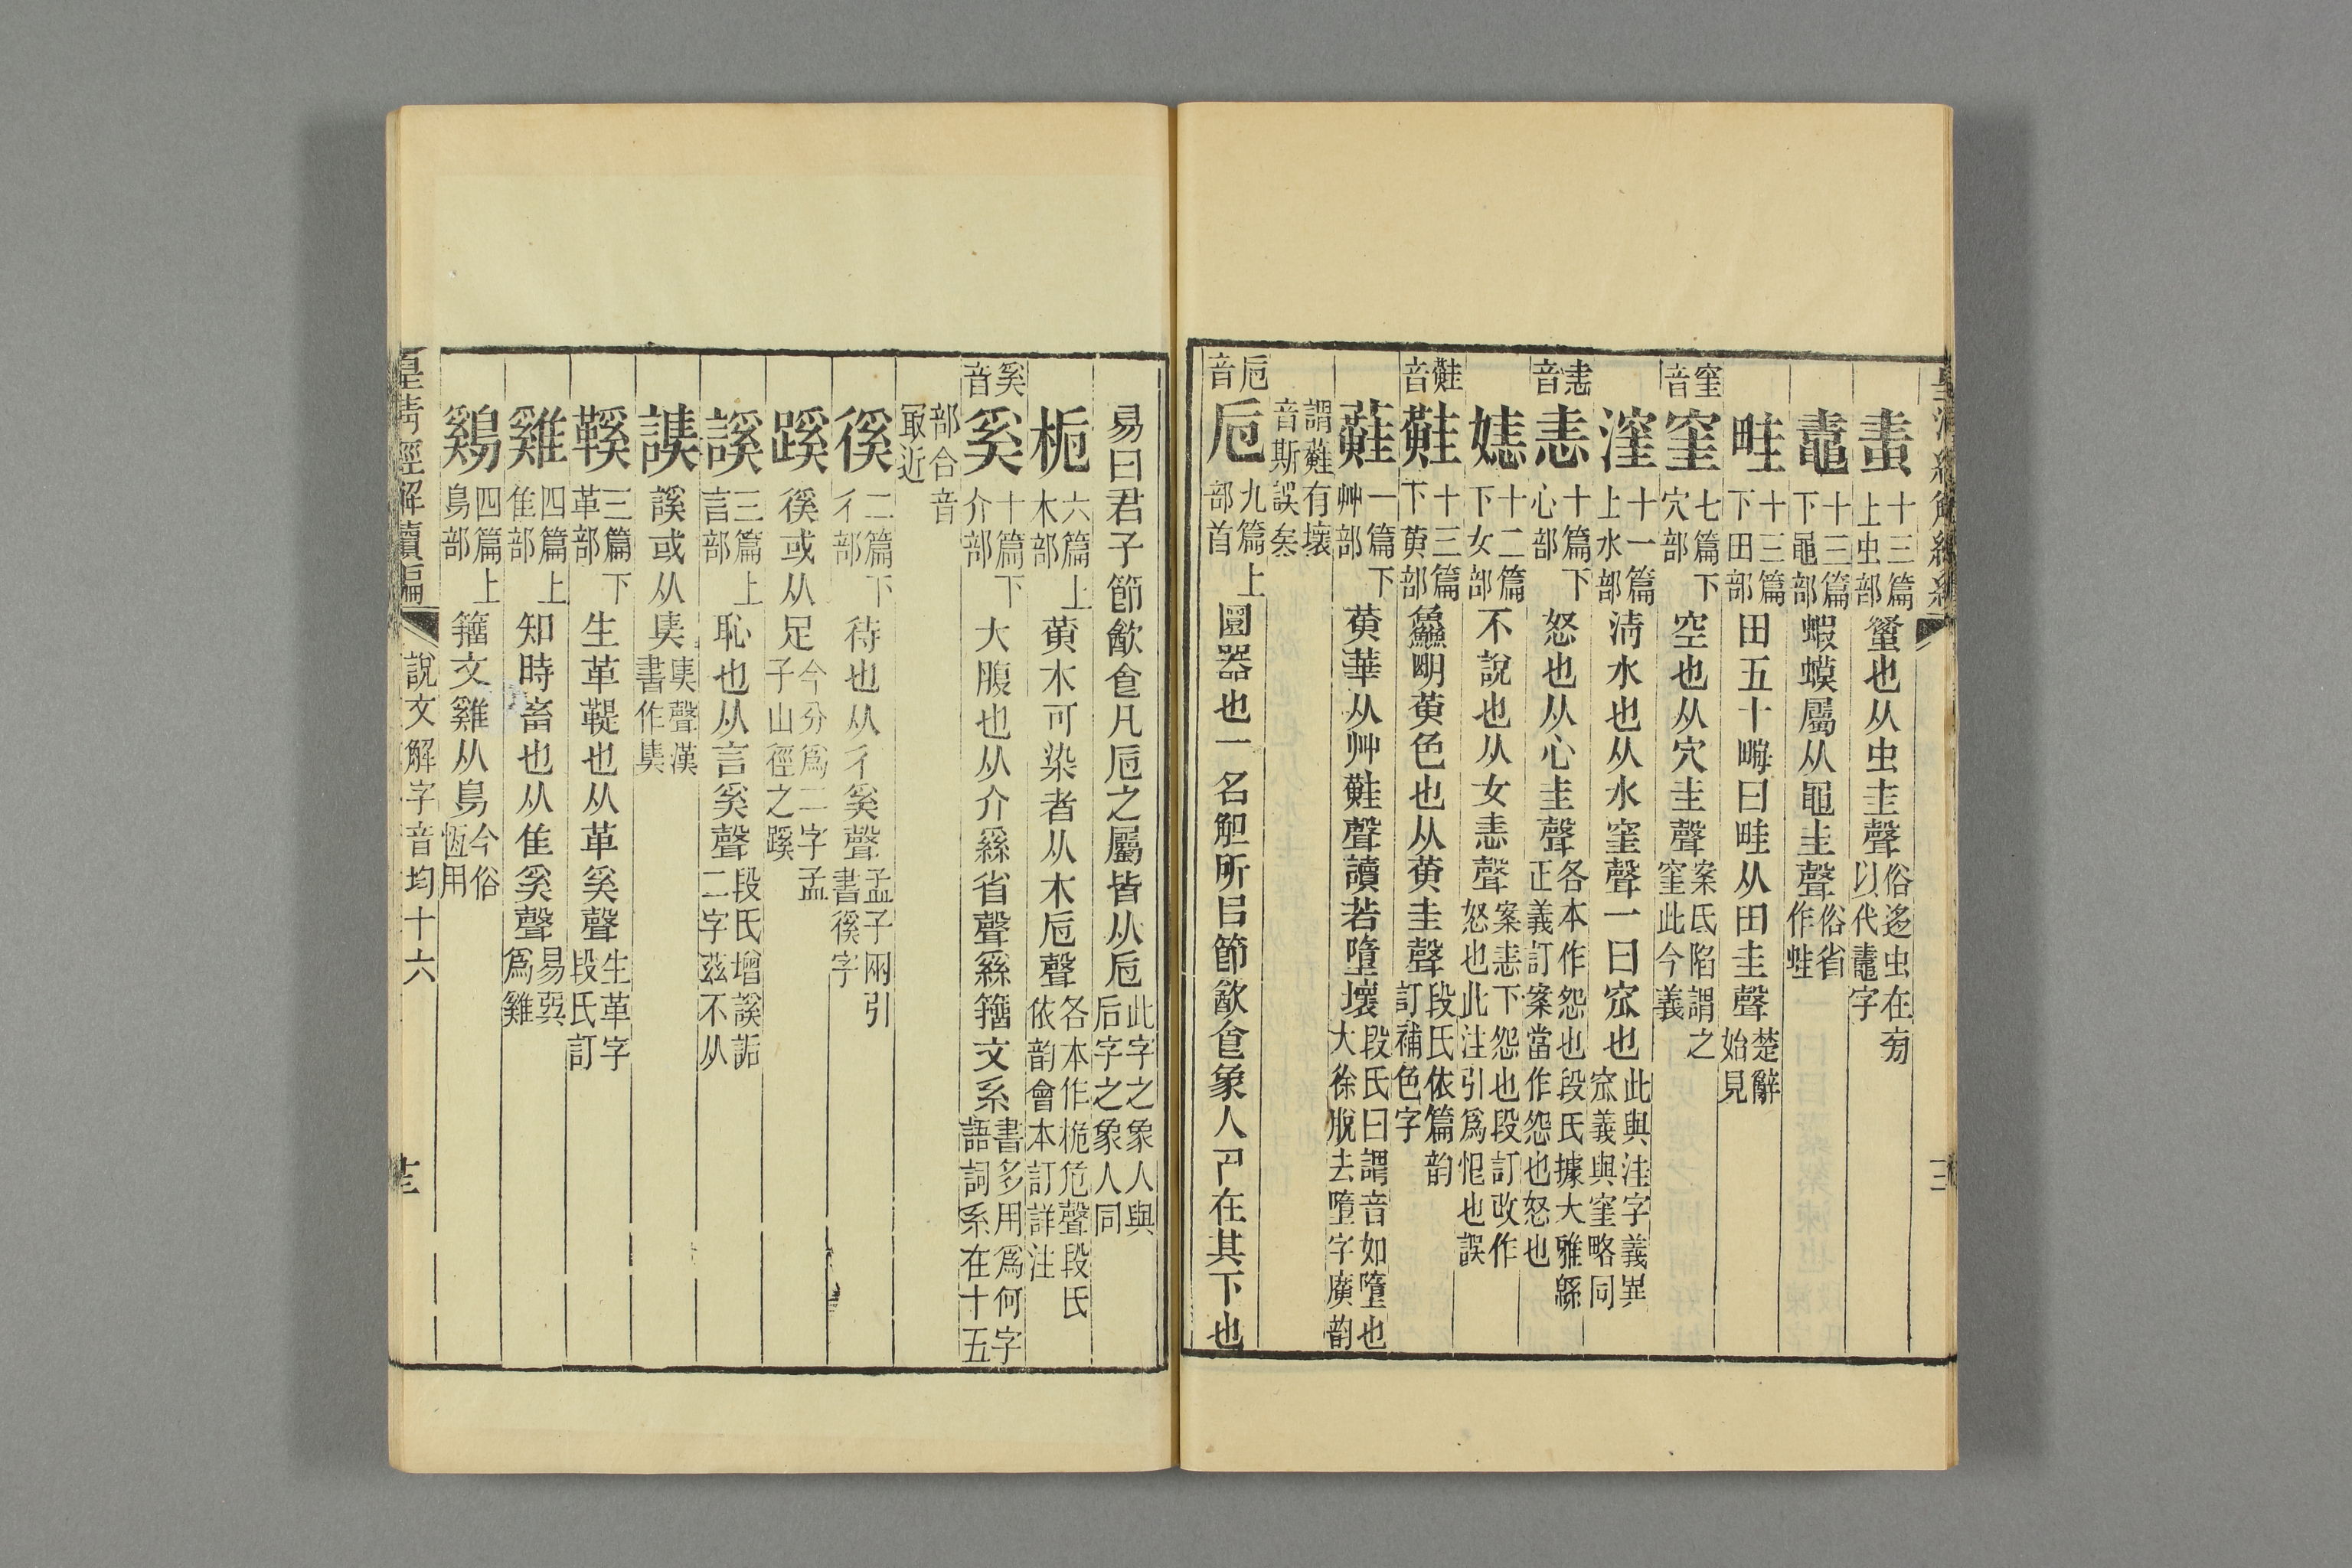 畫十三篇上虫部蠆也从虫圭聲俗迻虫在旁以代鼃字
鼃十三篇下黽部蝦蟆屬从黽圭聲俗省作蛙
畦十三篇下田部田五十畮曰畦从田圭聲楚辭始見
窐七篇下穴部空也从穴圭聲案氏陷謂之窐此今義
漥十一篇上水部淸水也从水窐聲一曰窊也此與洼字義異窊義與窐略同
恚十篇下心部怒也从心圭聲各本作怨也段氏據大雅緜正義訂案當作怨也怒也
嫿十二篇下女部不說也从女恚聲案恚下怨也段訂改作怒也此注引爲怛也誤
黊十三篇下黃部鱻明黃色也从黃圭聲段氏依篇韵訂補色字
蘳一篇下艸部黃華从艸黊聲讀若墮壞段氏曰謂音如墮也大徐脫去墮字廣韵
謂蘳有壞音斯誤矣
卮音
卮九篇上部首圜器也一名觛所㠯節歙食象人卪在其下也
易曰君子節歙食凡卮之屬皆从卮此字之象人與后字之象人同
梔六篇上木部黃木可染者从木卮聲各本作桅危聲段氏依韵會本訂詳注
奚音
奚十篇下夰部大腹也从夰䌛省聲䌛籒文系書多用爲何字語詞系在十五
部合音㝡近
徯二篇下彳部待也从彳奚聲孟子兩引書徯字
蹊徯或从足今分爲二字孟子山徑之蹊
謑三篇上言部恥也从言奚聲段氏增謑詬二字茲不从
謨謑或从𡙇𡙇聲漢書作𡙇
鞵三篇下革部生革鞮也从革奚聲生革字段氏訂
雞四篇上隹部知時畜也从隹奚聲易巽爲雞
鷄四篇上鳥部籒文雞从鳥今俗恆用
皇淸經解續編
說文解字音均十六